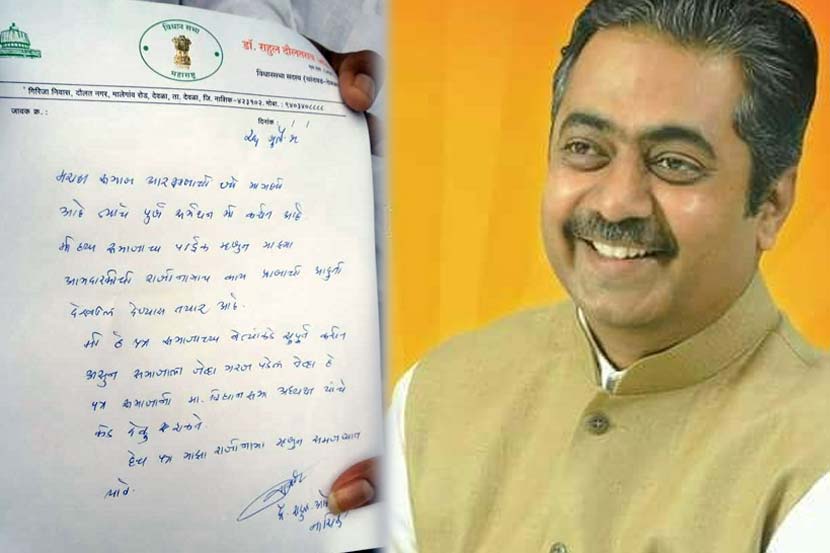 विधान सभा
महाराष्ट्र
डॉ. राहुल दौलतराव
विधानसभा सदस्य (चांदवड-देवळा
गिरिजा निवास, दौलत नगर, मालेगांव रोड, देवळा, ता. देवळा, जि. नाशिक-४२३१०२. मोबा. : ९४०३४०८८८८
जावक क्र. :
दिनांक : / /
मराठा समाज आरक्षणाची जी मागणी
आहे त्याचे पुर्ण समर्थन मी करीत आहे.
मी ह्या समाजाचा पाईक म्हणुन माझ्या
आमदारकीचा राजीनामाच काय प्राणाची आहुती
देखील देण्यास तयार आहे.
मी हे पत्र समाजाच्या नेत्यांकडे सुपुर्त करीत
असुन समाजाला जेव्हा गरज पडेल तेव्हा हे
पत्र समाजानी मा. विधानसभा अध्यक्ष यांचे
कडे देवु शकता.
हेच पत्र माझा राजीनामा म्हणुन समजण्यात
यावे.
डॉ. राहुल
नाशिक